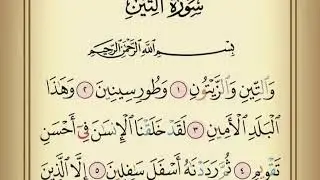 سُورَةُ التِّينِ
بِسْمِ اللَّهِ الرَّحْمَٰنِ الرَّحِيمِ
وَالتِّينِ وَالزَّيْتُونِ ١ وَطُورِ سِينِينَ ٢ وَهَٰذَا
الْبَلَدِ الْأَمِينِ ٣ لَقَدْ خَلَقْنَا الْإِنسَٰنَ فِىٓ أَحْسَنِ
تَقْوِيمٍ ٤ ثُمَّ رَدَدْنَٰهُ أَسْفَلَ سَٰفِلِينَ ٥ إِلَّا الَّذِينَ